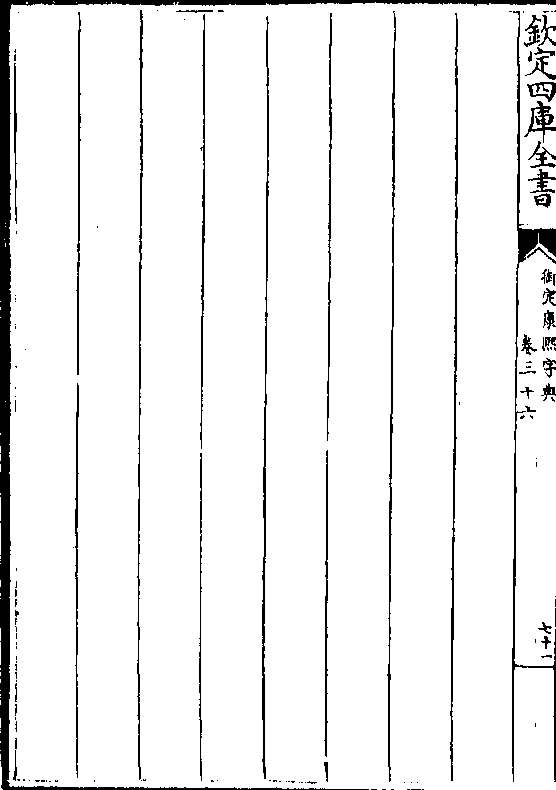 欽定四庫全書
御定康熙字典
卷三十六
七十一